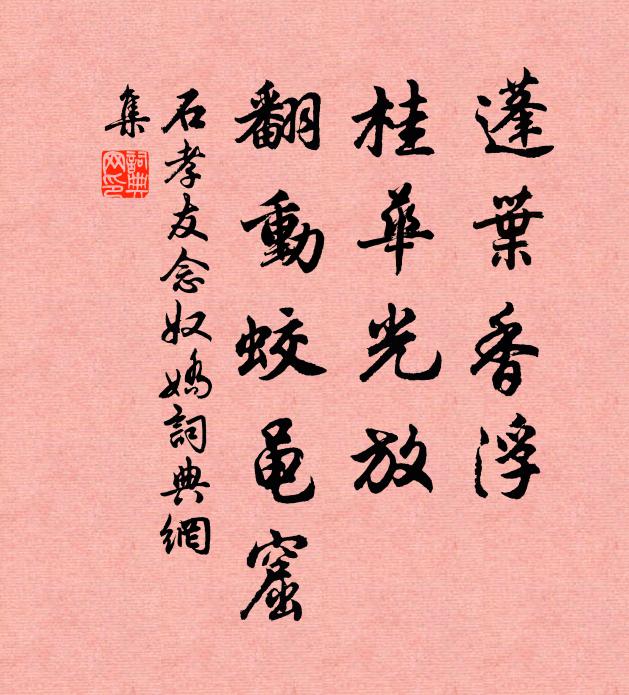 蓬葉香浮
桂華光放
翻動蛟黽窟
石孝友念奴嬌詞典網
集
詞典
网印